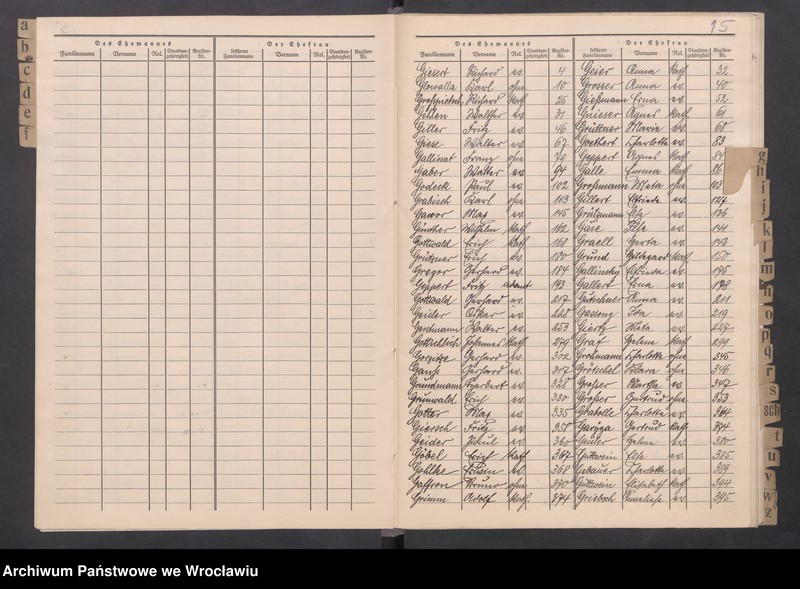 95
a
b
c
d
e
f
Des Ehemannes Der Ehefrau
Familienname Vorname Rel. Staatsangehörigkeit Register-Nr. früherer Familienname Vorname Rel. Staatsangehörigkeit Register-Nr.
Des Ehemannes Der Ehefrau
Familienname Vorname Rel. Staatsangehörigkeit Register-Nr. früherer Familienname Vorname Rel. Staatsangehörigkeit Register-Nr.
Giesert Richard ev. 4 Geier Anna kath. 32
Glowalla Karl ohne 10 Grosser Anna ev. 40
Richard kath. 26 Gießmann Erna ev. 52
Gehlen Walther ev. 31 Gnieser Agnes kath. 61
Giller Fritz ev. 46 Grüttner Marie ev. 68
Giese Walter ev. 67 Goethert Charlotte ev. 83
Gallinat Franz ohne 79 Geppert Agnes kath. 84
Gaber Walter ev. 94 Galle Emma kath. 86
Godeck Paul ev. 102 Großmann Meta ohne 103
Grabisch Karl ohne 103 Gillert Elfriede ev. 127
Gawor Max ev. 145 Grützmann Else ev. 136
Günther Wilhelm kath. 162 Gäse Else ev. 141
Gottwald Erich kath. 168 Graell Gerta ev. 143
Grützner Erich ev. 180 Grund Hildegard kath. 150
Greger Gerhard ev. 184 Gallinsky Elfrieda ev. 175
Geppert Fritz 193 Gallert Erna ev. 198
Gottwald Gerhard ev. 217 Gutschner Anna ev. 211
Geider Oskar ev. 228 Gassong Ida ev. 219
Gerstmann Walter ev. 253 Giertz Meta ev. 227
Gottschlich Johannes kath. 279 Graf Helene kath. 299
Gerhard ev. 302 Grohmann Charlotte ohne 345
Ganß Gerhard ev. 317 Grötschel Klara ohne 346
Grundmann Herbert ev. 328 Großer Martha ev. 347
Grunwald Erich ev. 330 Großer Gertrud ohne 353
Gotter Max ev. 335 Charlotte ev. 364
Giersch Fritz ev. 358 Gertrud kath. 374
Geider Paul ev. 360 Helene ev. 380
Göbel Erich kath. 367 Gutwein Else ev. 385
Gohlke Erwin ev. 368 Gebauer Charlotte ev. 389
Gaffron Bruno ohne 390 Gutwein Elisabeth kath. 394
Grimm Adolf kath. 374 Griebsch Anneliese ev. 395
g
h
i
j
k
l
m
n
o
p
q
r
s
sch
t
u
v
w
z
Archiwum Państwowe we Wrocławiu